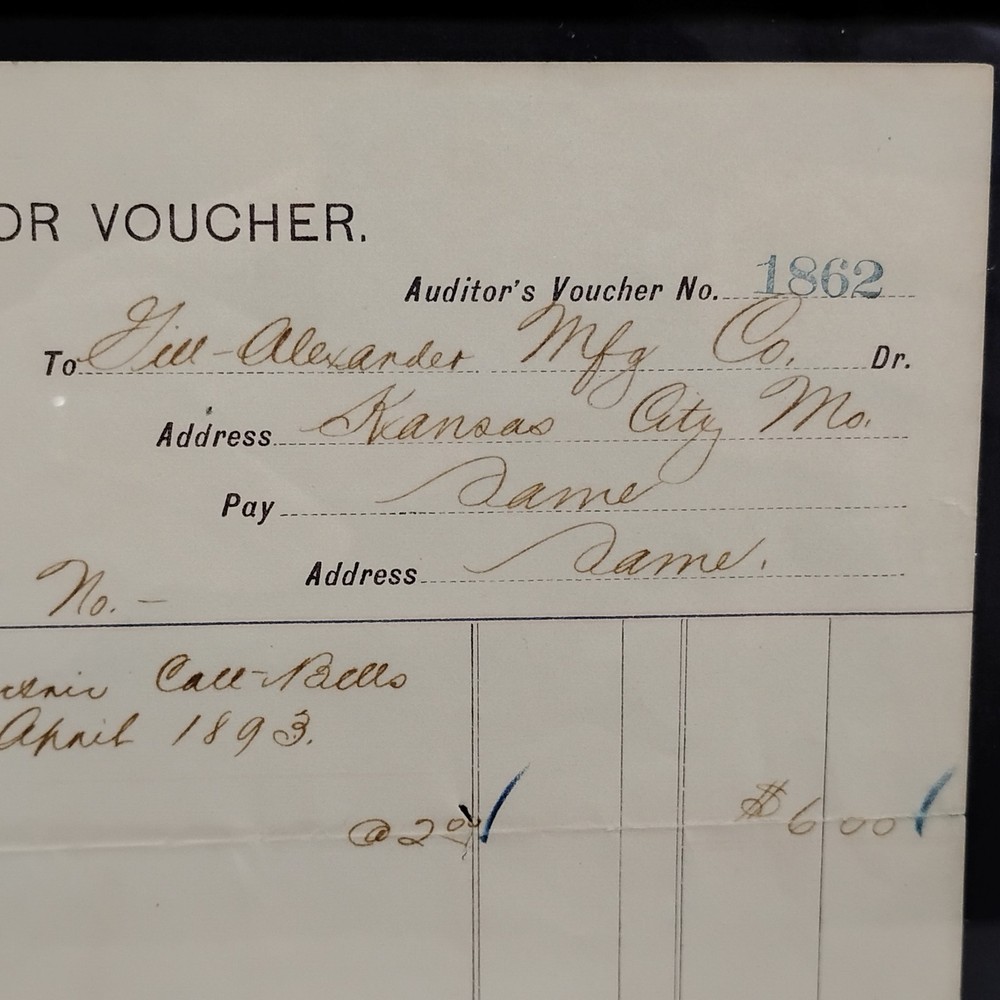 OR VOUCHER.
Auditor's Voucher No. 1862
To Gill-Alexander Mfg Co. Dr.
Address Kansas City Mo.
Pay Same
Address Same.
No. –
Call-Bells
April 1893.
@ 2 00 $ 6 00